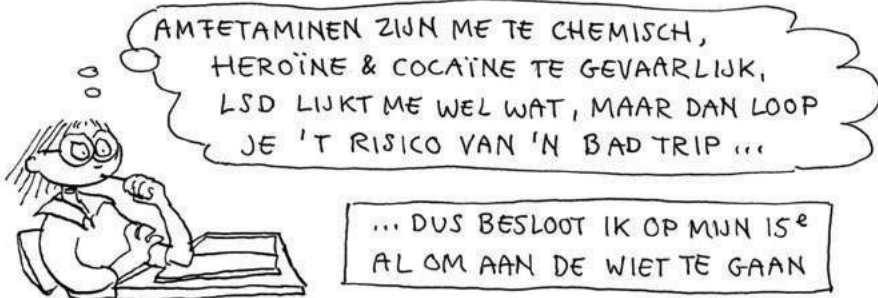 AMFETAMINEN ZIJN ME TE CHEMISCH,
HEROÏNE & COCAÏNE TE GEVAARLIJK,
LSD LIJKT ME WEL WAT, MAAR DAN LOOP
JE 'T RISICO VAN 'N BAD TRIP ...
... DUS BESLOOT IK OP MIJN 15e
AL OM AAN DE WIET TE GAAN